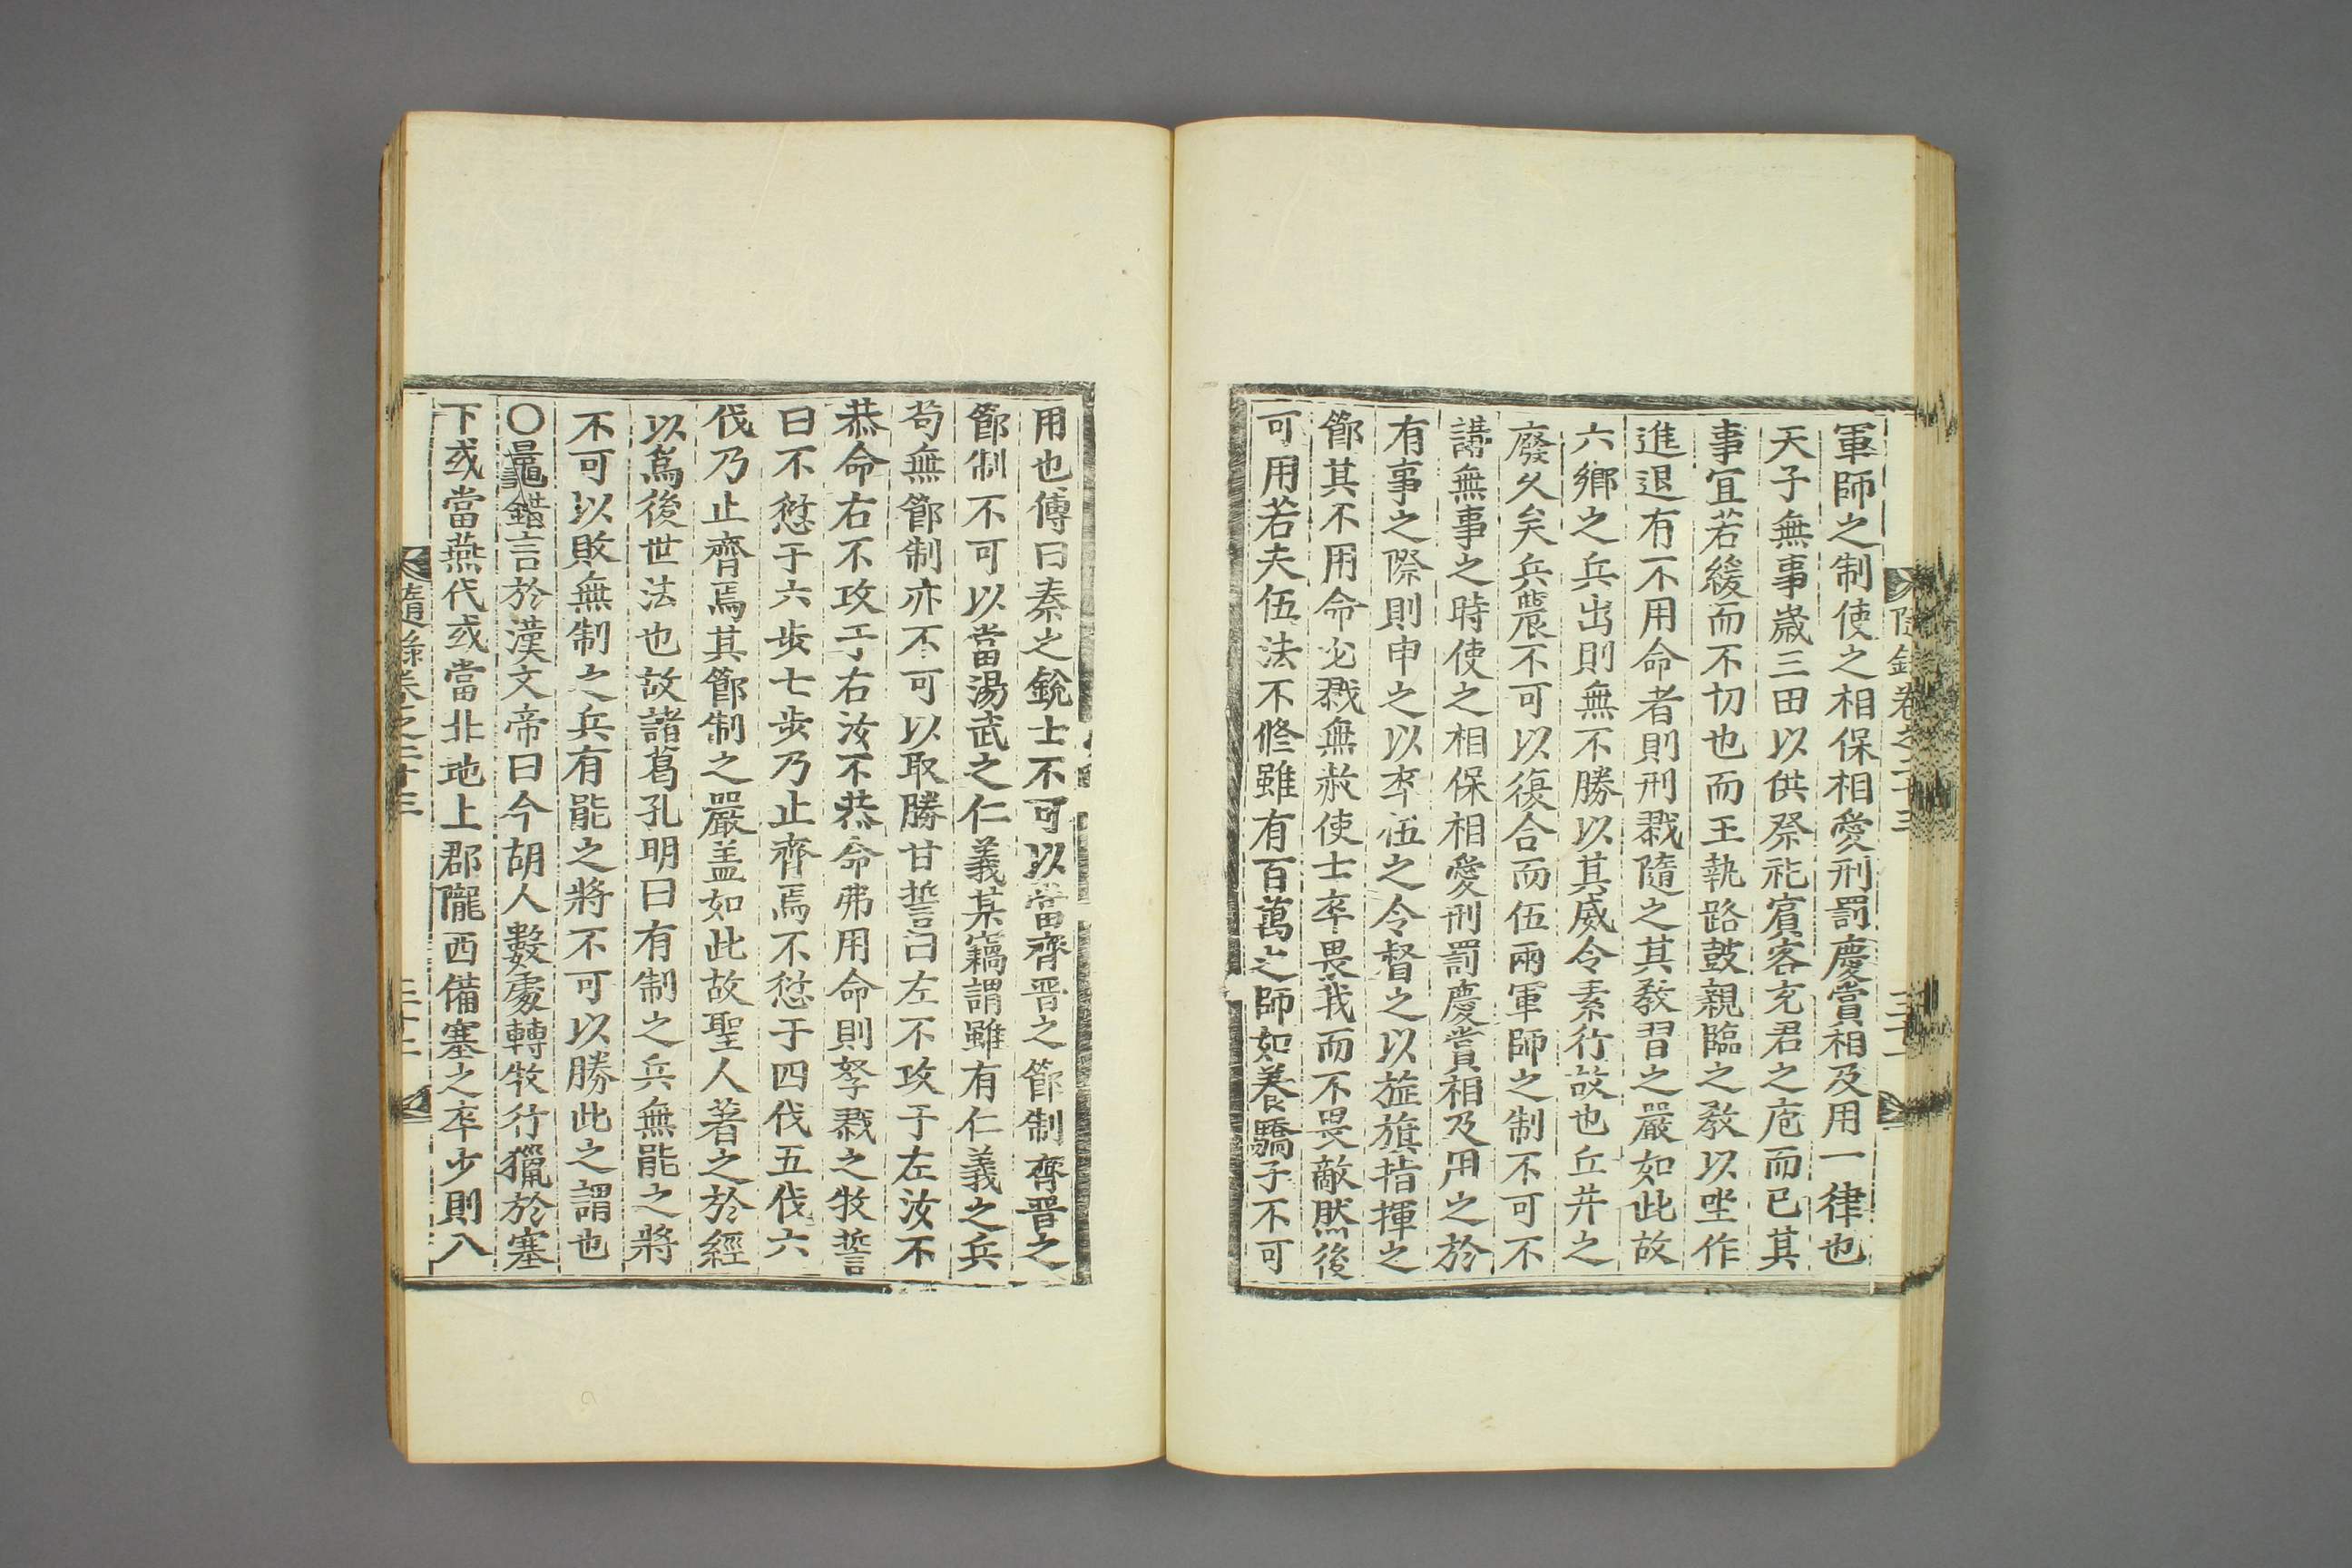 軍師之制使之相保相愛刑罰慶賞相及用一律也
天子無事歲三田以供祭祀賓客充君之庖而已其
事宜若緩而不切也而王執路鼓親臨之教以坐作
進退有不用命者則刑戮隨之其教習之嚴如此故
六鄉之兵出則無不勝以其威令素行故也丘井之
廢久矣兵農不可以復合而伍兩軍師之制不可不
講無事之時使之相保相愛刑罰慶賞相及用之於
有事之際則申之以卒伍之令督之以旌旗指揮之
節其不用命必戮無赦使士卒畏我而不畏敵然後
可用若夫伍法不修雖有百萬之師如養驕子不可
用也傳曰秦之銳士不可以當齊晋之節制齊晋之
節制不可以當湯武之仁義某竊謂雖有仁義之兵
苟無節制亦不可以取勝甘誓曰左不攻于左汝不
恭命右不攻于右汝不恭命弗用命則孥戮之牧誓
曰不愆于六步七步乃止齊焉不愆于四伐五伐六
伐乃止齊焉其節制之嚴盖如此故聖人著之於經
以爲後世法也故諸葛孔明曰有制之兵無能之將
不可以敗無制之兵有能之將不可以勝此之謂也
○鼂錯言於漢文帝曰今胡人數處轉牧行獵於塞
下或當燕代或當北地上郡隴西備塞之卒少則入
隨錄卷之二十三
三十二